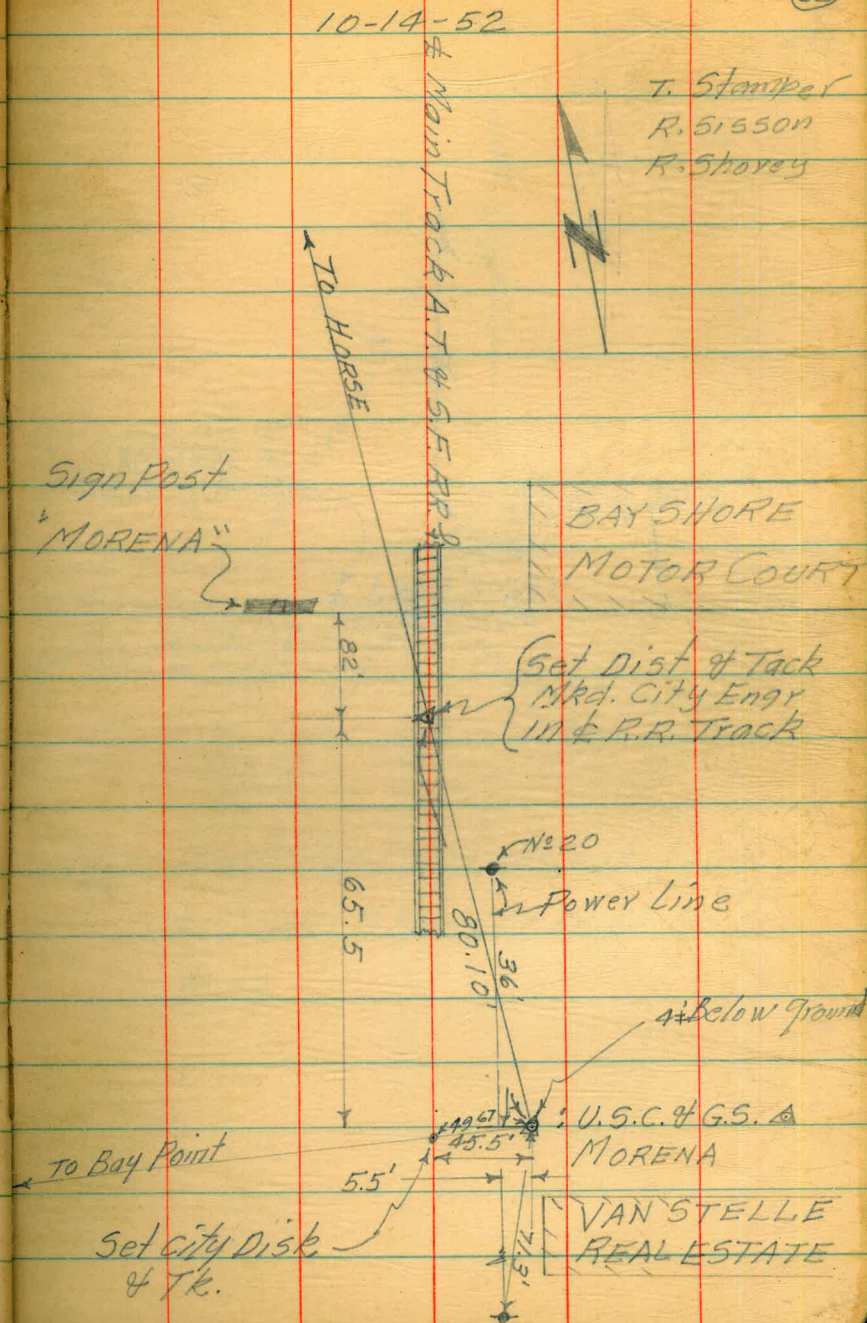 10-14-52
T. Stamper
R. Sisson
R. Shorey
N
℄ Main Track A.T. & S.F. RR
To HORSE
Sign Post
"MORENA"
BAY SHORE
MOTOR COURT
82'
Set Dist & Tack
Mkd. City Engr
in ℄ R.R. Track
65.5
Nº 20
Power Line
80.10'
36'
4'± Below ground
49.67
45.5'
U.S.C. & G.S. △
MORENA
To Bay Point
5.5'
71.3'
VAN STELLE
REAL ESTATE
Set City Disk
& Tk.